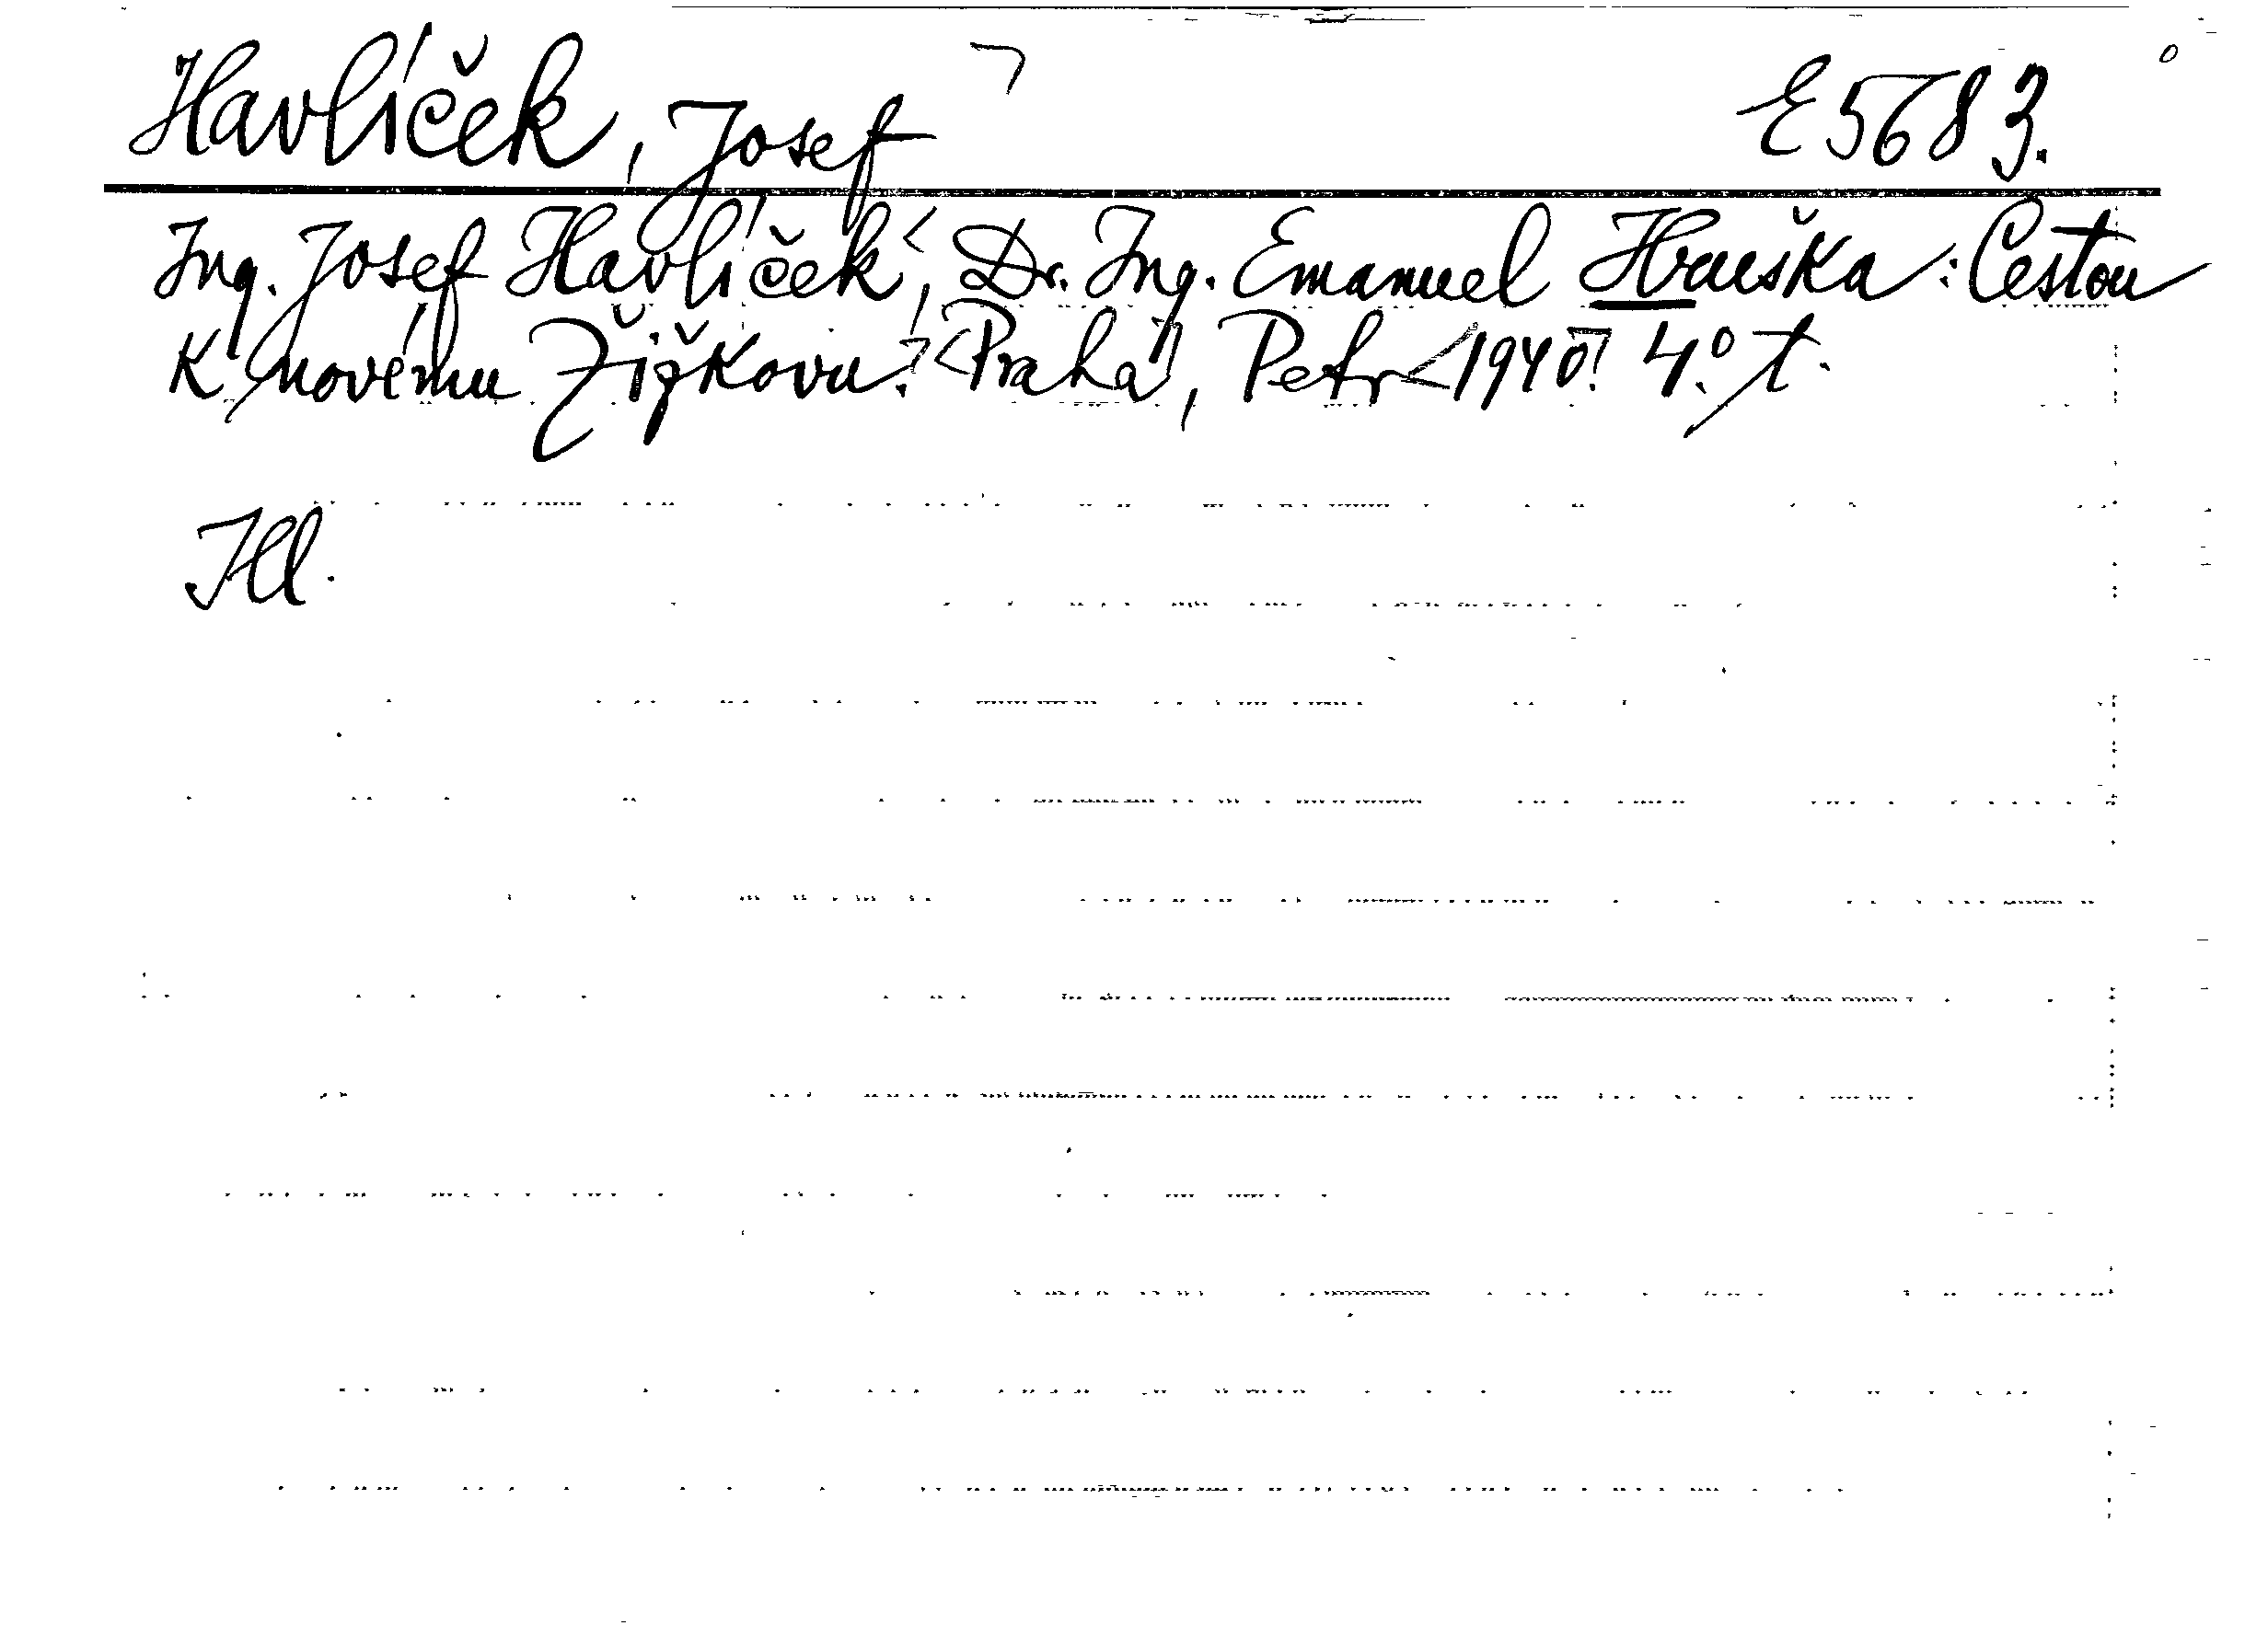 Havlíček, Josef E 5683.
Ing. Josef Havlíček, Dr. Ing. Emanuel Hruška: Cestou
k novému Žižkovu. <Praha>, Petr <1940>. 4.° t.
Ill.